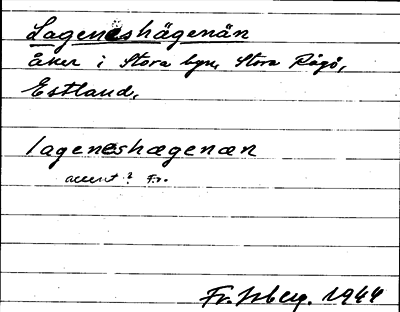 Lageneshägenän
åker i Stora byn, Stora Rågö,
Estland.
lageneshægenæn
accent? Fr.
Fr. Isberg. 1944